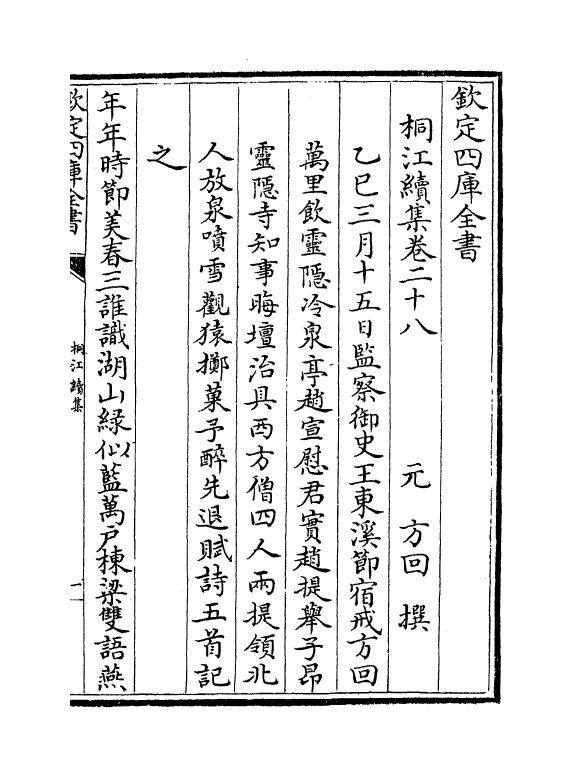 欽定四庫全書
桐江續集卷二十八　元　方回　撰
乙巳三月十五日監察御史王東溪節宿戒方回
萬里飲靈隱冷泉亭趙宣慰君實趙提舉子昂
靈隱寺知事晦壇治具西方僧四人兩提領北
人放泉噴雪觀猿擲菓予醉先退賦詩五首記
之
年年時節美春三誰識湖山緑似藍萬戸棟梁雙語燕
欽定四庫全書
桐江續集
一